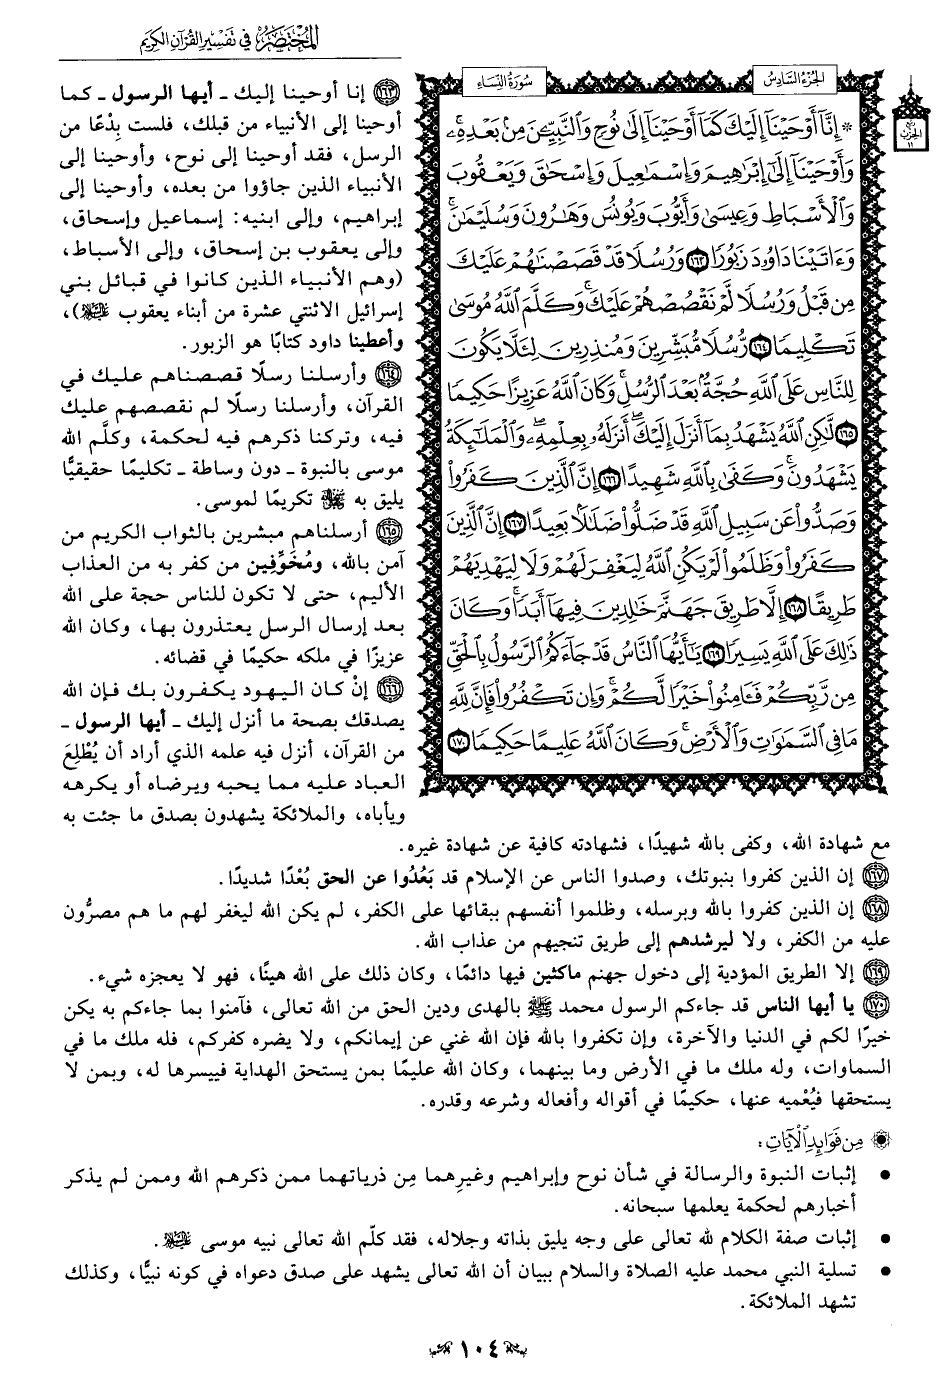 المختصر في تفسير القرآن الكريم
الجزء السادس
سورة النساء
ربع
الحزب
١١
* إِنَّا أَوْحَيْنَا إِلَيْكَ كَمَا أَوْحَيْنَا إِلَى نُوحٍ وَالنَّبِيِّينَ مِنْ بَعْدِهِ ۚ
وَأَوْحَيْنَا إِلَى إِبْرَاهِيمَ وَإِسْمَاعِيلَ وَإِسْحَاقَ وَيَعْقُوبَ
وَالْأَسْبَاطِ وَعِيسَى وَأَيُّوبَ وَيُونُسَ وَهَارُونَ وَسُلَيْمَانَ ۚ
وَءَاتَيْنَا دَاوُودَ زَبُورًا ١٦٣ وَرُسُلًا قَدْ قَصَصْنَاهُمْ عَلَيْكَ
مِن قَبْلُ وَرُسُلًا لَّمْ نَقْصُصْهُمْ عَلَيْكَ ۚ وَكَلَّمَ اللَّهُ مُوسَى
تَكْلِيمًا ١٦٤ رُّسُلًا مُّبَشِّرِينَ وَمُنذِرِينَ لِئَلَّا يَكُونَ
لِلنَّاسِ عَلَى اللَّهِ حُجَّةٌ بَعْدَ الرُّسُلِ ۚ وَكَانَ اللَّهُ عَزِيزًا حَكِيمًا
١٦٥ لَّكِنِ اللَّهُ يَشْهَدُ بِمَا أَنزَلَ إِلَيْكَ ۖ أَنزَلَهُ بِعِلْمِهِ ۖ وَالْمَلَائِكَةُ
يَشْهَدُونَ ۚ وَكَفَى بِاللَّهِ شَهِيدًا ١٦٦ إِنَّ الَّذِينَ كَفَرُوا
وَصَدُّوا عَن سَبِيلِ اللَّهِ قَدْ ضَلُّوا ضَلَالًا بَعِيدًا ١٦٧ إِنَّ الَّذِينَ
كَفَرُوا وَظَلَمُوا لَمْ يَكُنِ اللَّهُ لِيَغْفِرَ لَهُمْ وَلَا لِيَهْدِيَهُمْ
طَرِيقًا ١٦٨ إِلَّا طَرِيقَ جَهَنَّمَ خَالِدِينَ فِيهَا أَبَدًا ۚ وَكَانَ
ذَلِكَ عَلَى اللَّهِ يَسِيرًا ١٦٩ يَاأَيُّهَا النَّاسُ قَدْ جَاءَكُمُ الرَّسُولُ بِالْحَقِّ
مِن رَّبِّكُمْ فَـَٔامِنُوا خَيْرًا لَّكُمْ ۚ وَإِن تَكْفُرُوا فَإِنَّ لِلَّهِ
مَا فِي السَّمَاوَاتِ وَالْأَرْضِ ۚ وَكَانَ اللَّهُ عَلِيمًا حَكِيمًا ١٧٠
١٦٣ إنا أوحينا إليك ـ أيها الرسول ـ كما
أوحينا إلى الأنبياء من قبلك، فلست بِدْعًا من
الرسل، فقد أوحينا إلى نوح، وأوحينا إلى
الأنبياء الذين جاؤوا من بعده، وأوحينا إلى
إبراهيم، وإلى ابنيه: إسماعيل وإسحاق،
وإلى يعقوب بن إسحاق، وإلى الأسباط،
(وهم الأنبياء الذين كانوا في قبائل بني
إسرائيل الاثنتي عشرة من أبناء يعقوب عليه السلام)،
وأعطينا داود كتابًا هو الزبور.
١٦٤ وأرسلنا رسلًا قصصناهم عليك في
القرآن، وأرسلنا رسلًا لم نقصصهم عليك
فيه، وتركنا ذكرهم فيه لحكمة، وكلَّم الله
موسى بالنبوة ـ دون وساطة ـ تكليمًا حقيقيًّا
يليق به ﷻ تكريمًا لموسى.
١٦٥ أرسلناهم مبشرين بالثواب الكريم من
آمن بالله، ومُخَوِّفين من كفر به من العذاب
الأليم، حتى لا تكون للناس حجة على الله
بعد إرسال الرسل يعتذرون بها، وكان الله
عزيزًا في ملكه حكيمًا في قضائه.
١٦٦ إنْ كان اليهود يكفرون بك فإن الله
يصدقك بصحة ما أنزل إليك ـ أيها الرسول ـ
من القرآن، أنزل فيه علمه الذي أراد أن يُطْلِعَ
العباد عليه مما يحبه ويرضاه أو يكرهه
ويأباه، والملائكة يشهدون بصدق ما جئت به
مع شهادة الله، وكفى بالله شهيدًا، فشهادته كافية عن شهادة غيره.
١٦٧ إن الذين كفروا بنبوتك، وصدوا الناس عن الإسلام قد بَعُدُوا عن الحق بُعْدًا شديدًا.
١٦٨ إن الذين كفروا بالله وبرسله، وظلموا أنفسهم ببقائها على الكفر، لم يكن الله ليغفر لهم ما هم مصرُّون
عليه من الكفر، ولا ليرشدهم إلى طريق تنجيهم من عذاب الله.
١٦٩ إلا الطريق المؤدية إلى دخول جهنم ماكثين فيها دائمًا، وكان ذلك على الله هينًا، فهو لا يعجزه شيء.
١٧٠ يا أيها الناس قد جاءكم الرسول محمد ﷺ بالهدى ودين الحق من الله تعالى، فآمنوا بما جاءكم به يكن
خيرًا لكم في الدنيا والآخرة، وإن تكفروا بالله فإن الله غني عن إيمانكم، ولا يضره كفركم، فله ملك ما في
السماوات، وله ملك ما في الأرض وما بينهما، وكان الله عليمًا بمن يستحق الهداية فييسرها له، وبمن لا
يستحقها فيُعْميه عنها، حكيمًا في أقواله وأفعاله وشرعه وقدره.
مِن فَوَائِدِ الْآيَاتِ:
• إثبات النبوة والرسالة في شأن نوح وإبراهيم وغيرِهما مِن ذرياتهما ممن ذكرهم الله وممن لم يذكر
أخبارهم لحكمة يعلمها سبحانه.
• إثبات صفة الكلام لله تعالى على وجه يليق بذاته وجلاله، فقد كلّم الله تعالى نبيه موسى عليه السلام.
• تسلية النبي محمد عليه الصلاة والسلام ببيان أن الله تعالى يشهد على صدق دعواه في كونه نبيًّا، وكذلك
تشهد الملائكة.
١٠٤